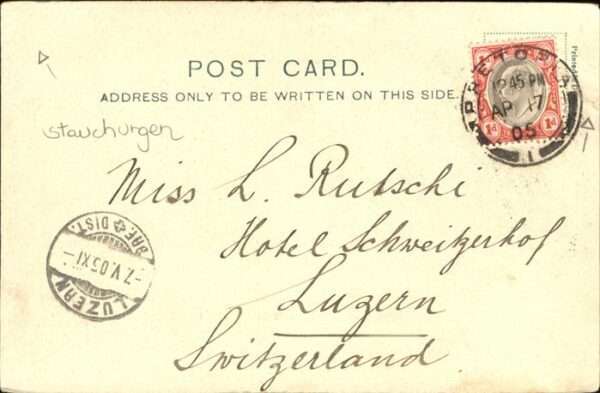 POST CARD.
ADDRESS ONLY TO BE WRITTEN ON THIS SIDE.
PRETORIA
12 45 PM
AP 17
05
1
1d 1d
stauchungen
Miss L. Rutschi
Hotel Schweitzerhof
Luzern
Switzerland.
LUZERN
-7.V.05 XI-
BRF. DIST.